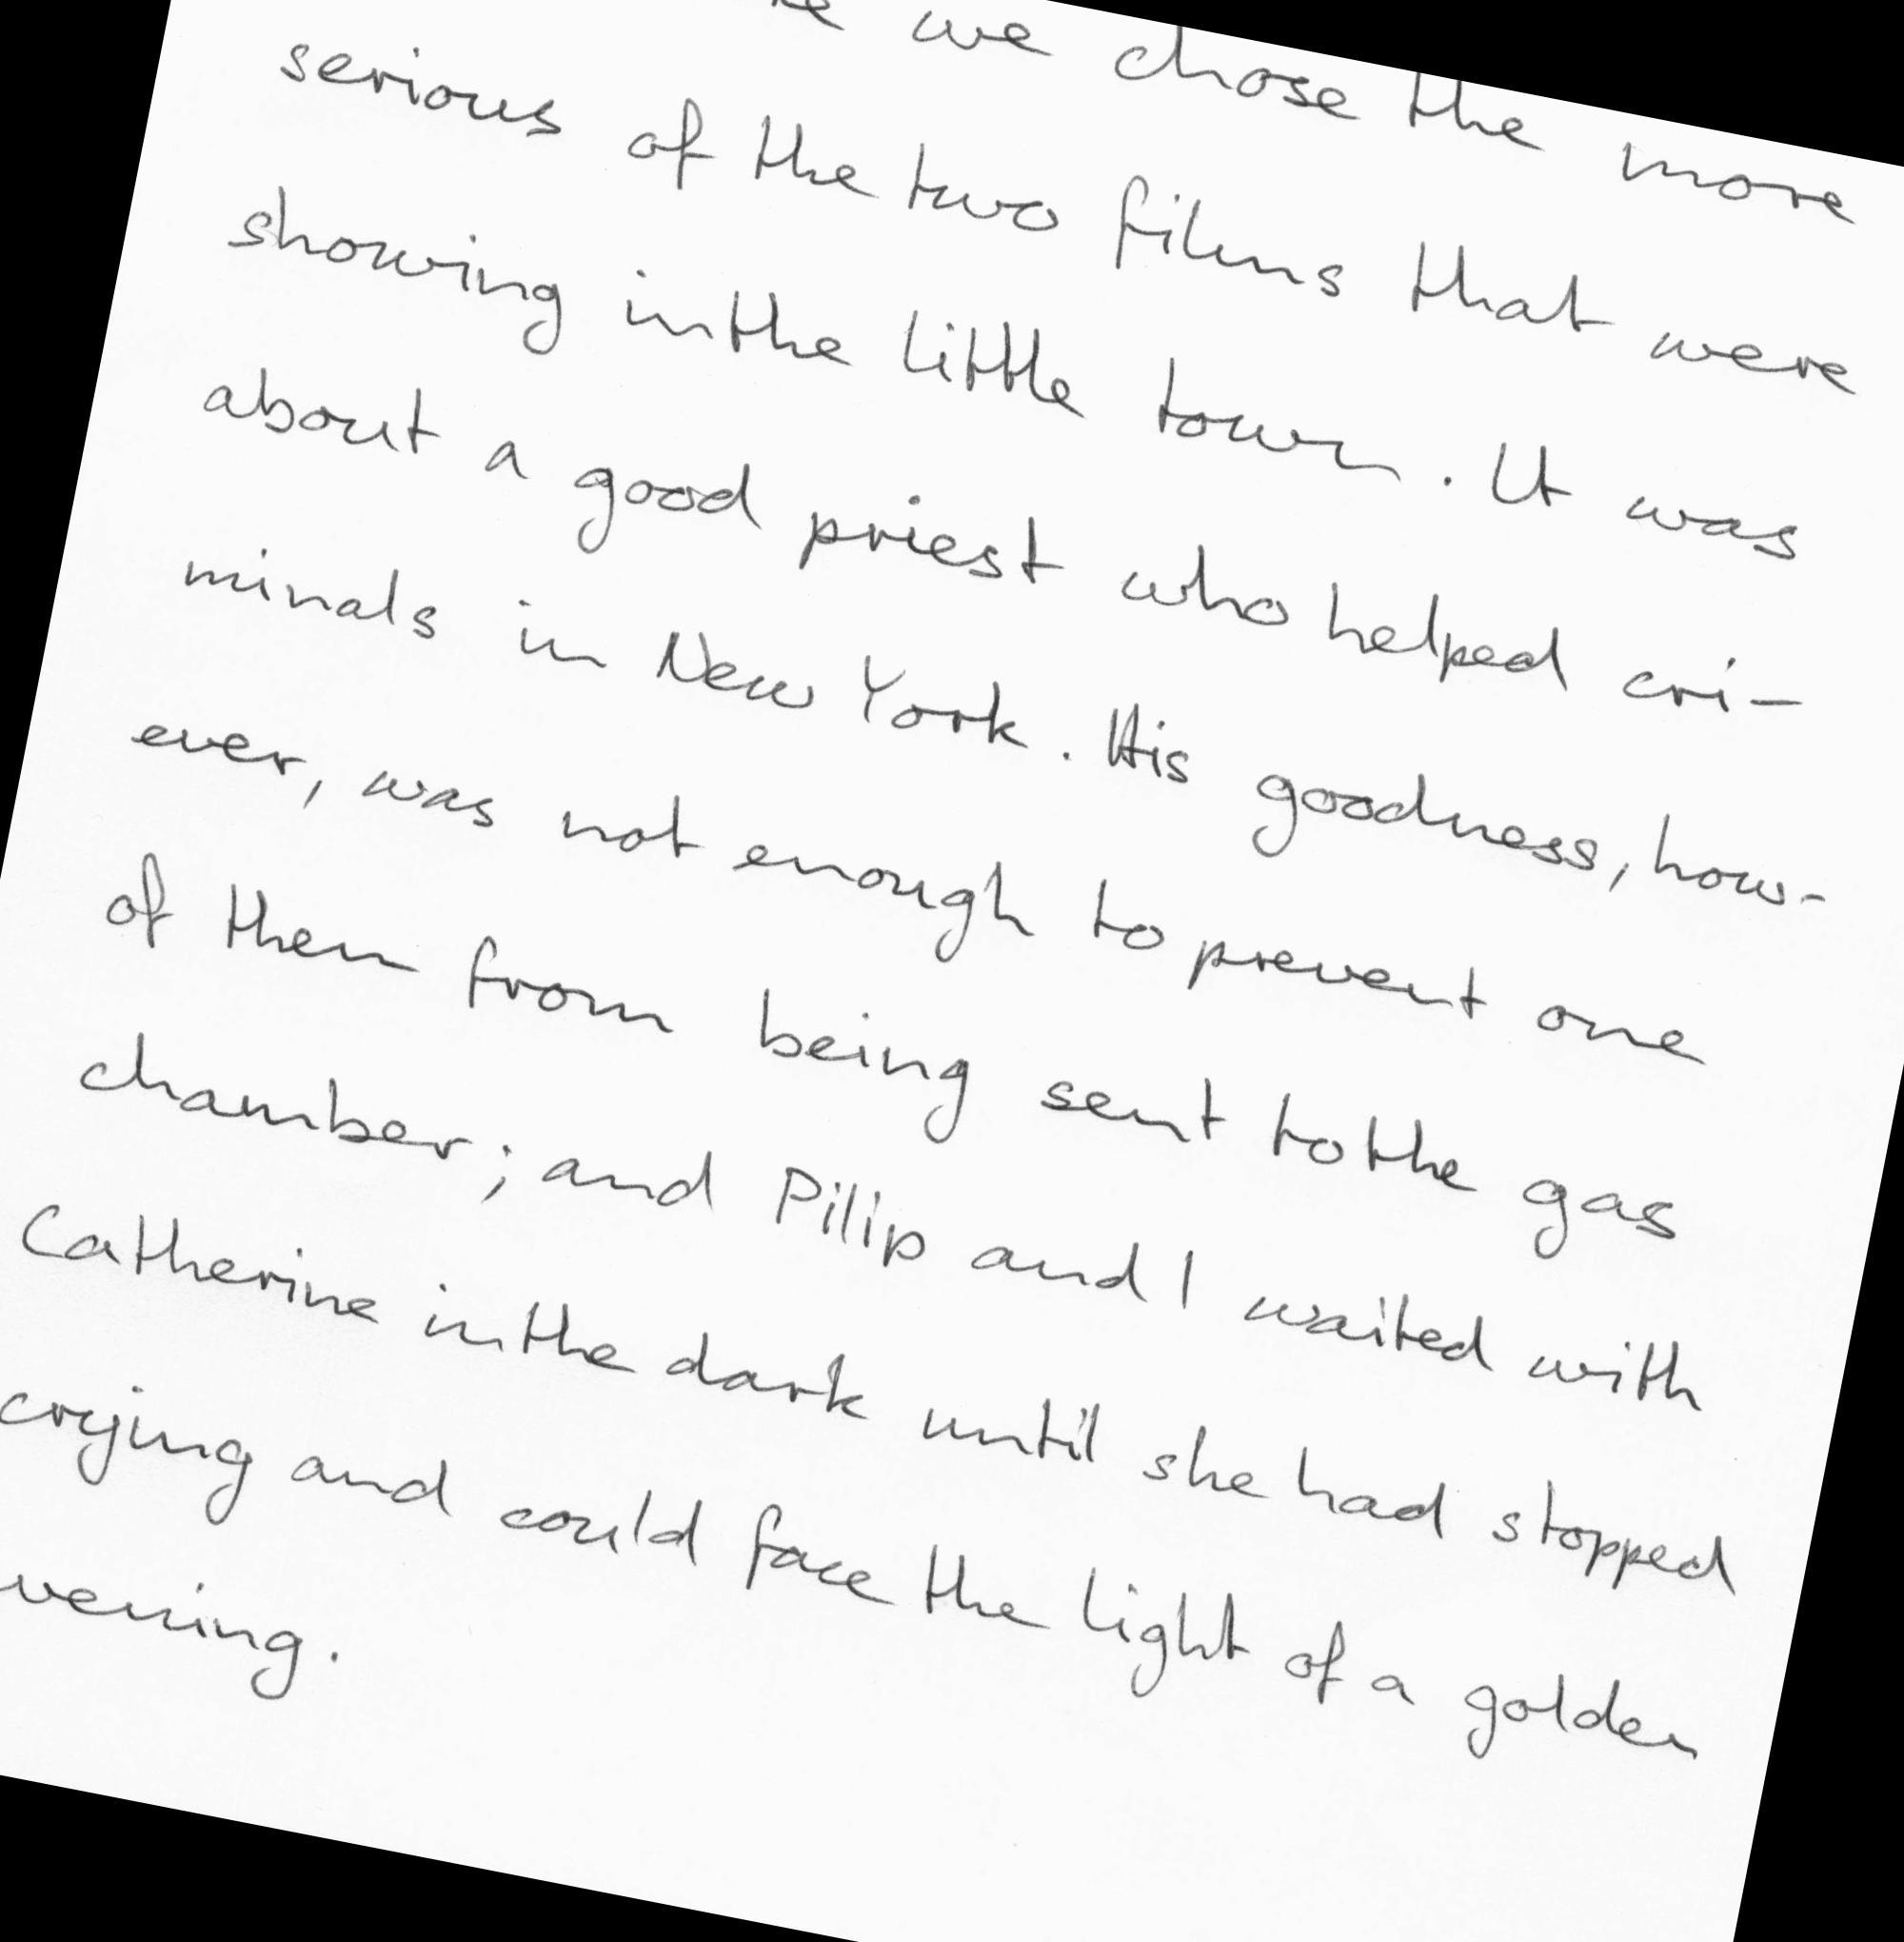 we chose the more
serious of the two films that were
showing in the little town. It was
about a good priest who helped cri-
minals in New York. His goodness, how-
ever, was not enough to prevent one
of them from being sent to the gas
chamber; and Pilip and I waited with
Catherine in the dark until she had stopped
crying and could face the light of a golden
vening.